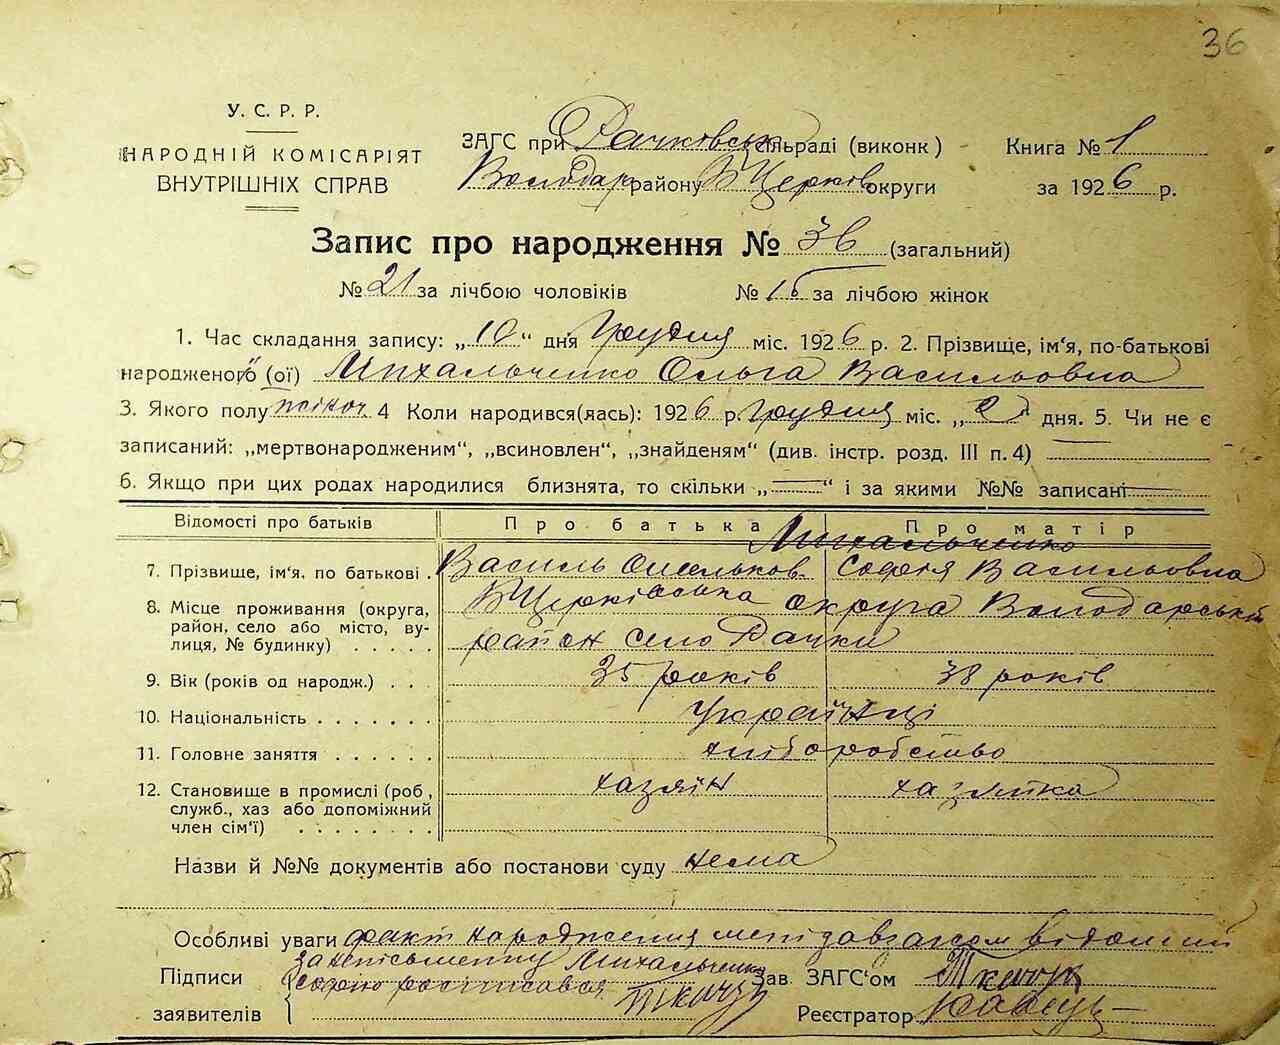 36
У. С. Р. Р.
НАРОДНІЙ КОМІСАРІЯТ
ВНУТРІШНІХ СПРАВ
ЗАГС при Рачківськ сільраді (виконк) Книга № 1
Володар району БЦерків округи за 1926 р.
Запис про народження № 36 (загальний)
№ 21 за лічбою чоловіків № 15 за лічбою жінок
1. Час складання запису: „10“ дня грудня міс. 1926 р. 2. Прізвище, ім‘я, по-батькові
народженого (ої) Михальченко Ольга Васильовна
3. Якого полу жіноч 4 Коли народився(лась): 1926 р. грудня міс. „2“ дня. 5. Чи не є
записаний: „мертвонародженим“, „всиновлен“, „знайденям“ (див. інстр. розд. III п. 4)
6. Якщо при цих родах народилися близнята, то скільки „—“ і за якими №№ записані
Відомості про батьків Про батька Про матір
Михальченко
7. Прізвище, ім‘я, по батькові . Василь Омельков. Софія Васильовна
8. Місце проживання (округа, район, село або місто, вулиця, № будинку) . . . . . БЦерківська округа Володарський
район село Рачки
9. Вік (років од народж.) . . . 35 років 38 років
10. Національність . . . . . . . Українці
11. Головне заняття . . . . . . хліборобство
12. Становище в промислі (роб, служб., хаз або допоміжний член сім‘ї) . . . . . . . хазяїн хазяйка
Назви й №№ документів або постанови суду нема
Особливі уваги факт народження мені завзагсом відомий
Підписи заявителів за неписьменну Михальченко
Софію росписався Ткачук
Зав. ЗАГС‘ом Ткачук
Реєстратор